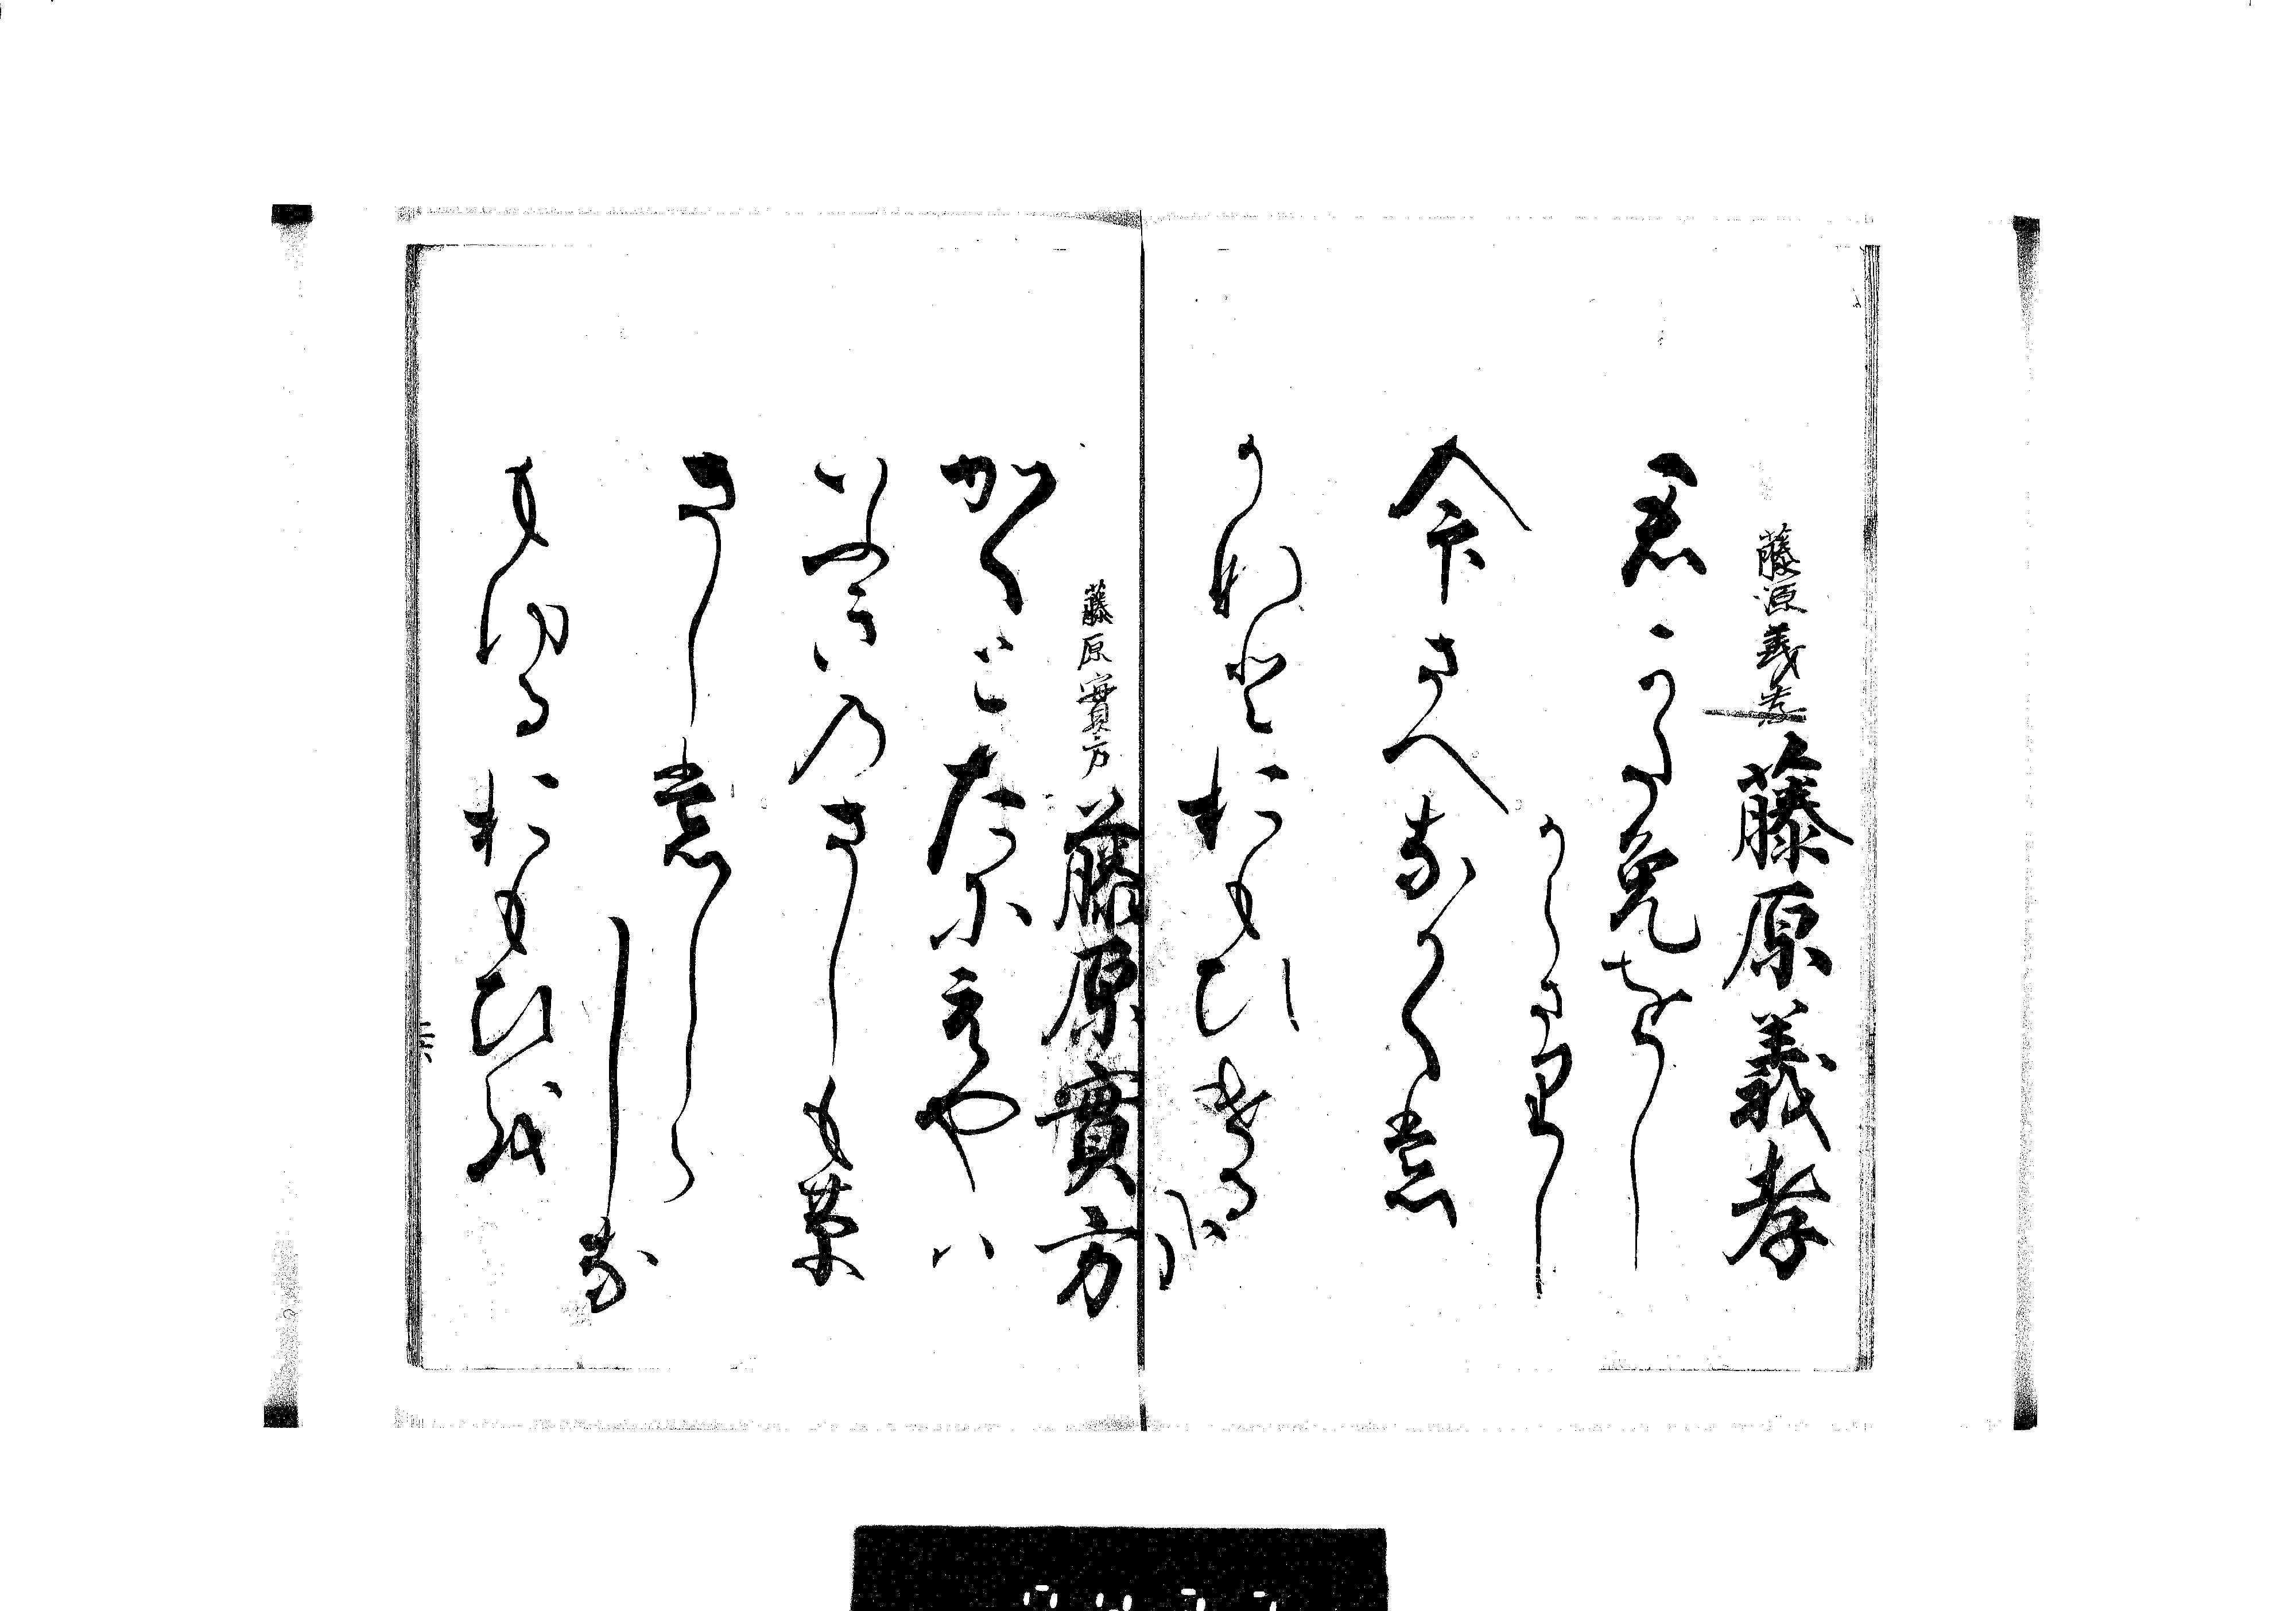 藤源義孝
藤原義孝
君かためをし
からさりし
命さへなかくも
かなとおもひける
かな
藤原實方
藤原實方
かくとたにえやは
いふきのさしも草
さしもしら
しな
もゆるおもひを